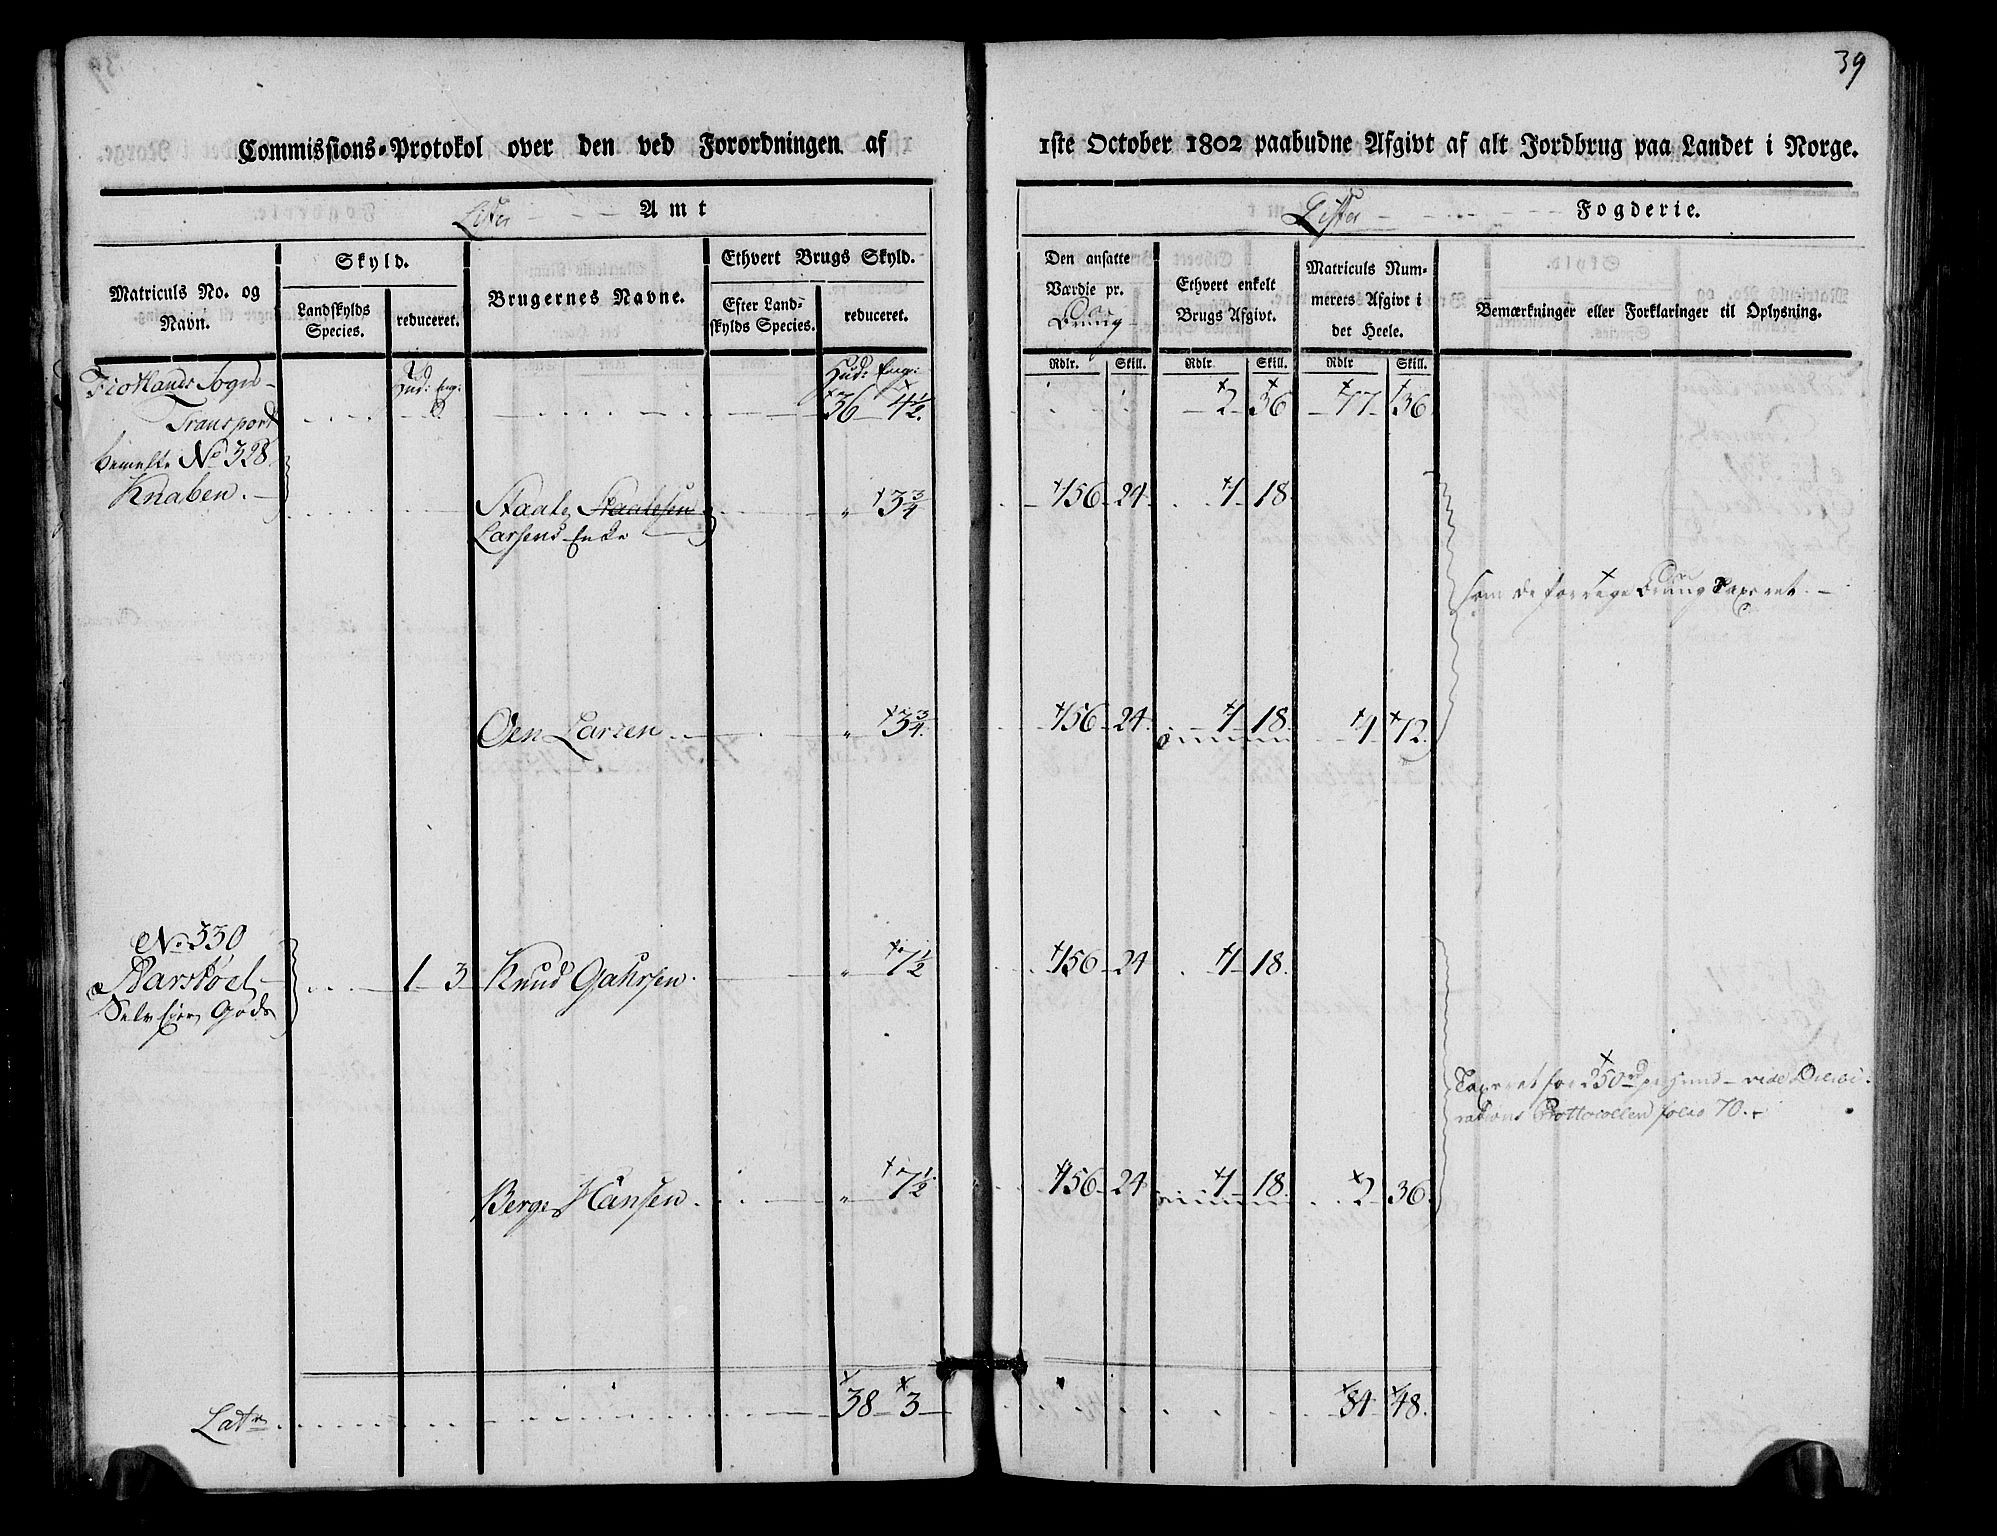 39
Commissions-Protokol over den ved Forordningen af 1ste October 1802 paabudne Afgivt af alt Jordbrug paa Landet i Norge.
Lister Amt
Lister Fogderie.
Matriculs No. og Navn.
Skyld.
Landskylds Species.
reduceret.
Brugernes Navne.
Ethvert Brugs Skyld.
Efter Landskylds Species.
reduceret.
Den ansatte Værdie pr.
Ethvert enkelt Brugs Afgivt.
Matriculs Nummerets Afgivt i det Heele.
Bemærkninger eller Forklaringer til Oplysning.
Rdlr. Skill. Rdlr Skill. Rdlr Skill.
Fiotlands Sogn Hud: Eng: Hud: Eng:
Transport 36 4½ 2 36 77 36
No 328
Knaben.
Staale Staalesen " 3¾ 156 24 1 18
Larsens Enke
som de forrige Taxeret.
Oen Larsen " 3¾ 156 24 1 18 4 72
No 330
1 3 Knud Gahrsen " 7½ 156 24 1 18
Selv Eier Gods
Taxeret for 250 rd pr Hud - vide
Prottocollen folio 70.
Berge Hansen " 7½ 156 24 1 18 2 36
Latr 38 3 84 48